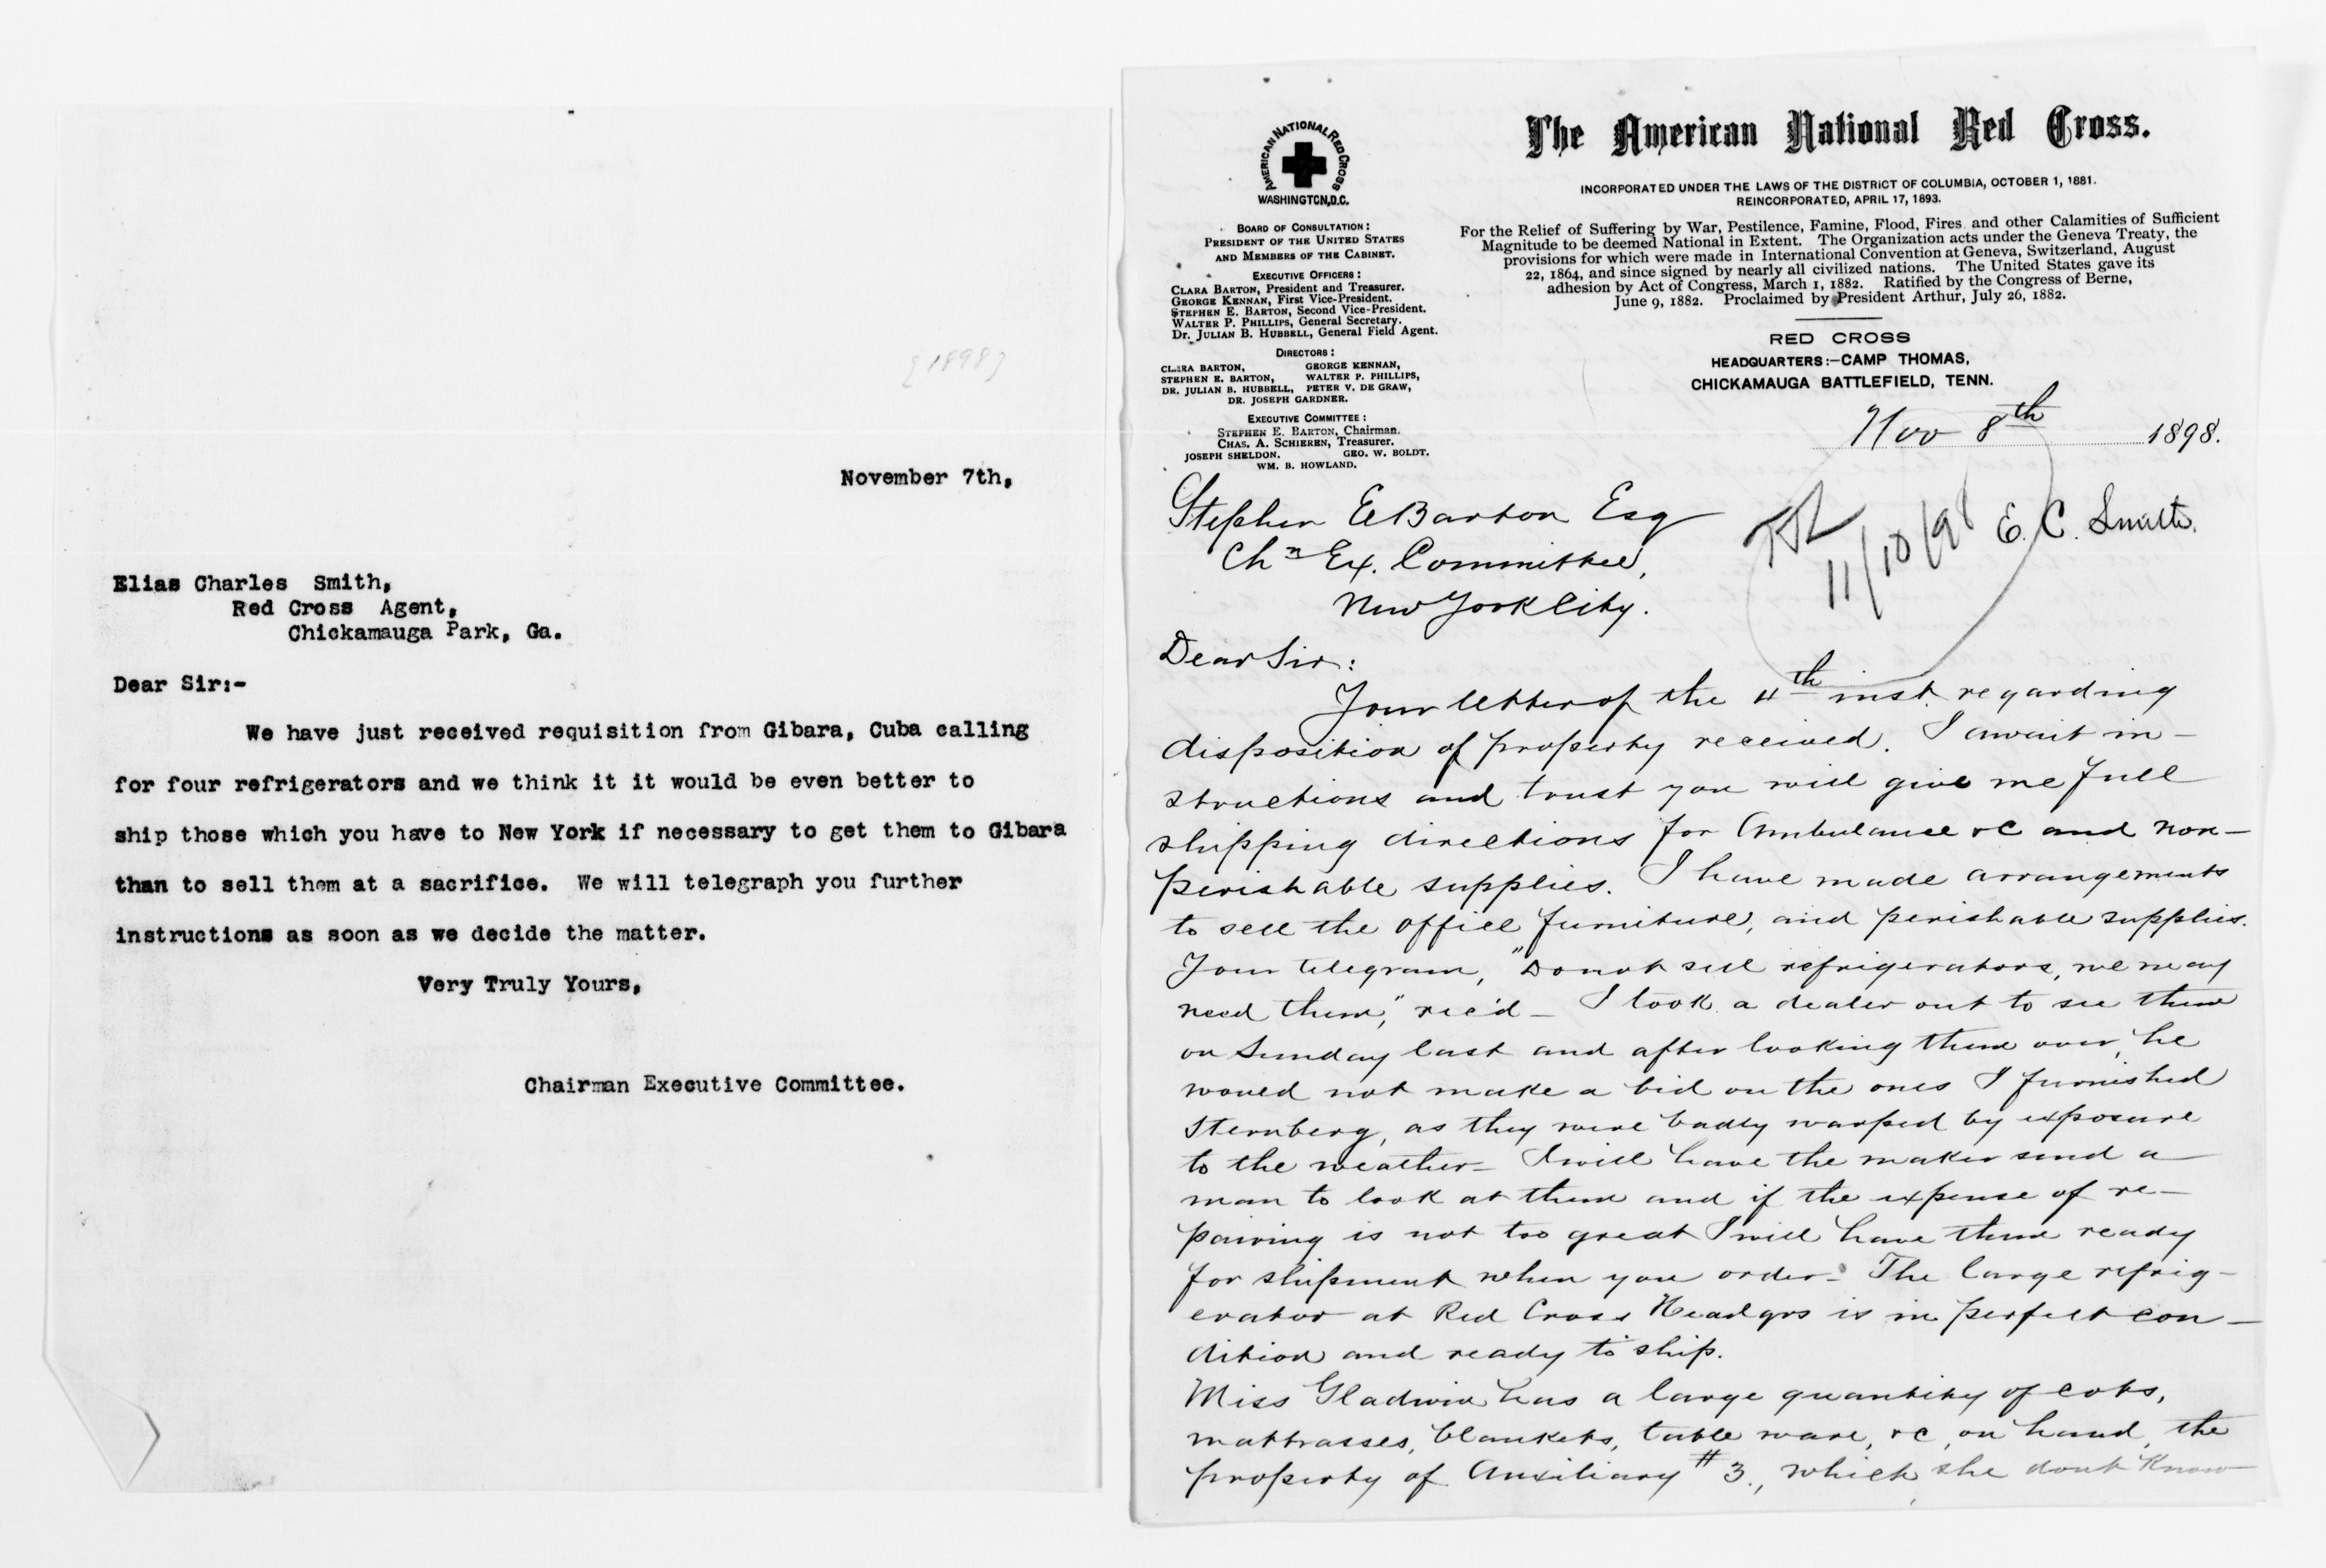 [1898]
November 7th,
Elias Charles Smith,
Red Cross Agent,
Chickamauga Park, Ga.
Dear Sir:-
We have just received requisition from Gibara, Cuba calling
for four refrigerators and we think it it would be even better to
ship those which you have to New York if necessary to get them to Gibara
than to sell them at a sacrifice. We will telegraph you further
instructions as soon as we decide the matter.
Very Truly Yours,
Chairman Executive Committee.
AMERICAN NATIONAL RED CROSS
WASHINGTON, D.C.
The American National Red Cross.
INCORPORATED UNDER THE LAWS OF THE DISTRICT OF COLUMBIA, OCTOBER 1, 1881.
REINCORPORATED, APRIL 17, 1893.
For the Relief of Suffering by War, Pestilence, Famine, Flood, Fires and other Calamities of Sufficient
Magnitude to be deemed National in Extent. The Organization acts under the Geneva Treaty, the
provisions for which were made in International Convention at Geneva, Switzerland, August
22, 1864, and since signed by nearly all civilized nations. The United States gave its
adhesion by Act of Congress, March 1, 1882. Ratified by the Congress of Berne,
June 9, 1882. Proclaimed by President Arthur, July 26, 1882.
BOARD OF CONSULTATION:
PRESIDENT OF THE UNITED STATES
AND MEMBERS OF THE CABINET.
EXECUTIVE OFFICERS:
CLARA BARTON, President and Treasurer.
GEORGE KENNAN, First Vice-President.
STEPHEN E. BARTON, Second Vice-President.
WALTER P. PHILLIPS, General Secretary.
Dr. JULIAN B. HUBBELL, General Field Agent.
DIRECTORS:
CLARA BARTON, GEORGE KENNAN,
STEPHEN E. BARTON, WALTER P. PHILLIPS,
DR. JULIAN B. HUBBELL, PETER V. DE GRAW,
DR. JOSEPH GARDNER.
EXECUTIVE COMMITTEE:
STEPHEN E. BARTON, Chairman.
CHAS. A. SCHIEREN, Treasurer.
JOSEPH SHELDON. GEO. W. BOLDT.
WM. B. HOWLAND.
RED CROSS
HEADQUARTERS:-CAMP THOMAS,
CHICKAMAUGA BATTLEFIELD, TENN.
Nov 8th 1898.
Stephen E Barton Esq
Chn Ex. Committee,
New York City.
11/10/98 E. C. Smith.
Dear Sir:
Your letter of the 4th inst. regarding
disposition of property received. I await in-
structions and trust you will give me full
shipping directions for Ambulance &c and non-
perishable supplies. I have made arrangements
to sell the office furniture, and perishable supplies.
Your telegram, "Do not sell refrigerators, we may
need them," rec'd - I took a dealer out to see them
on Sunday last and after looking them over, he
would not make a bid on the ones I furnished
Sternberg, as they were badly warped by exposure
to the weather - I will have the maker send a
man to look at them and if the expense of re-
pairing is not too great I will have them ready
for shipment when you order - The large refrig-
erator at Red Cross Headqrs is in perfect con-
dition and ready to ship.
Miss Gladwin has a large quantity of cots,
mattrasses, blankets, table ware, &c, on hand, the
property of Auxiliary #3., which she dont know